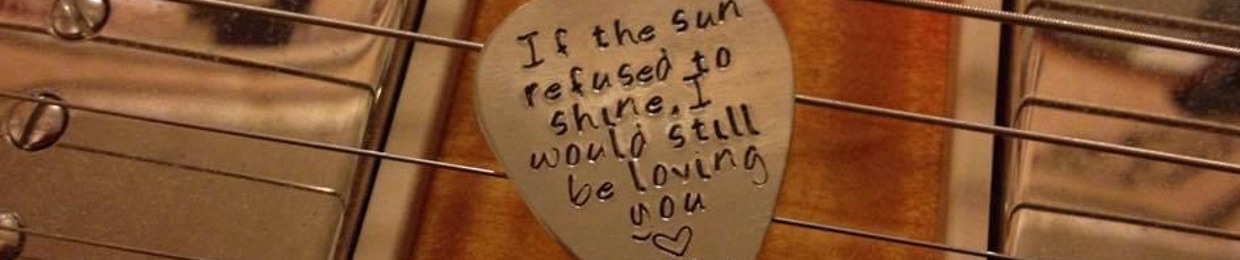 If the sun
refused to
shine, I
would still
be loving
you